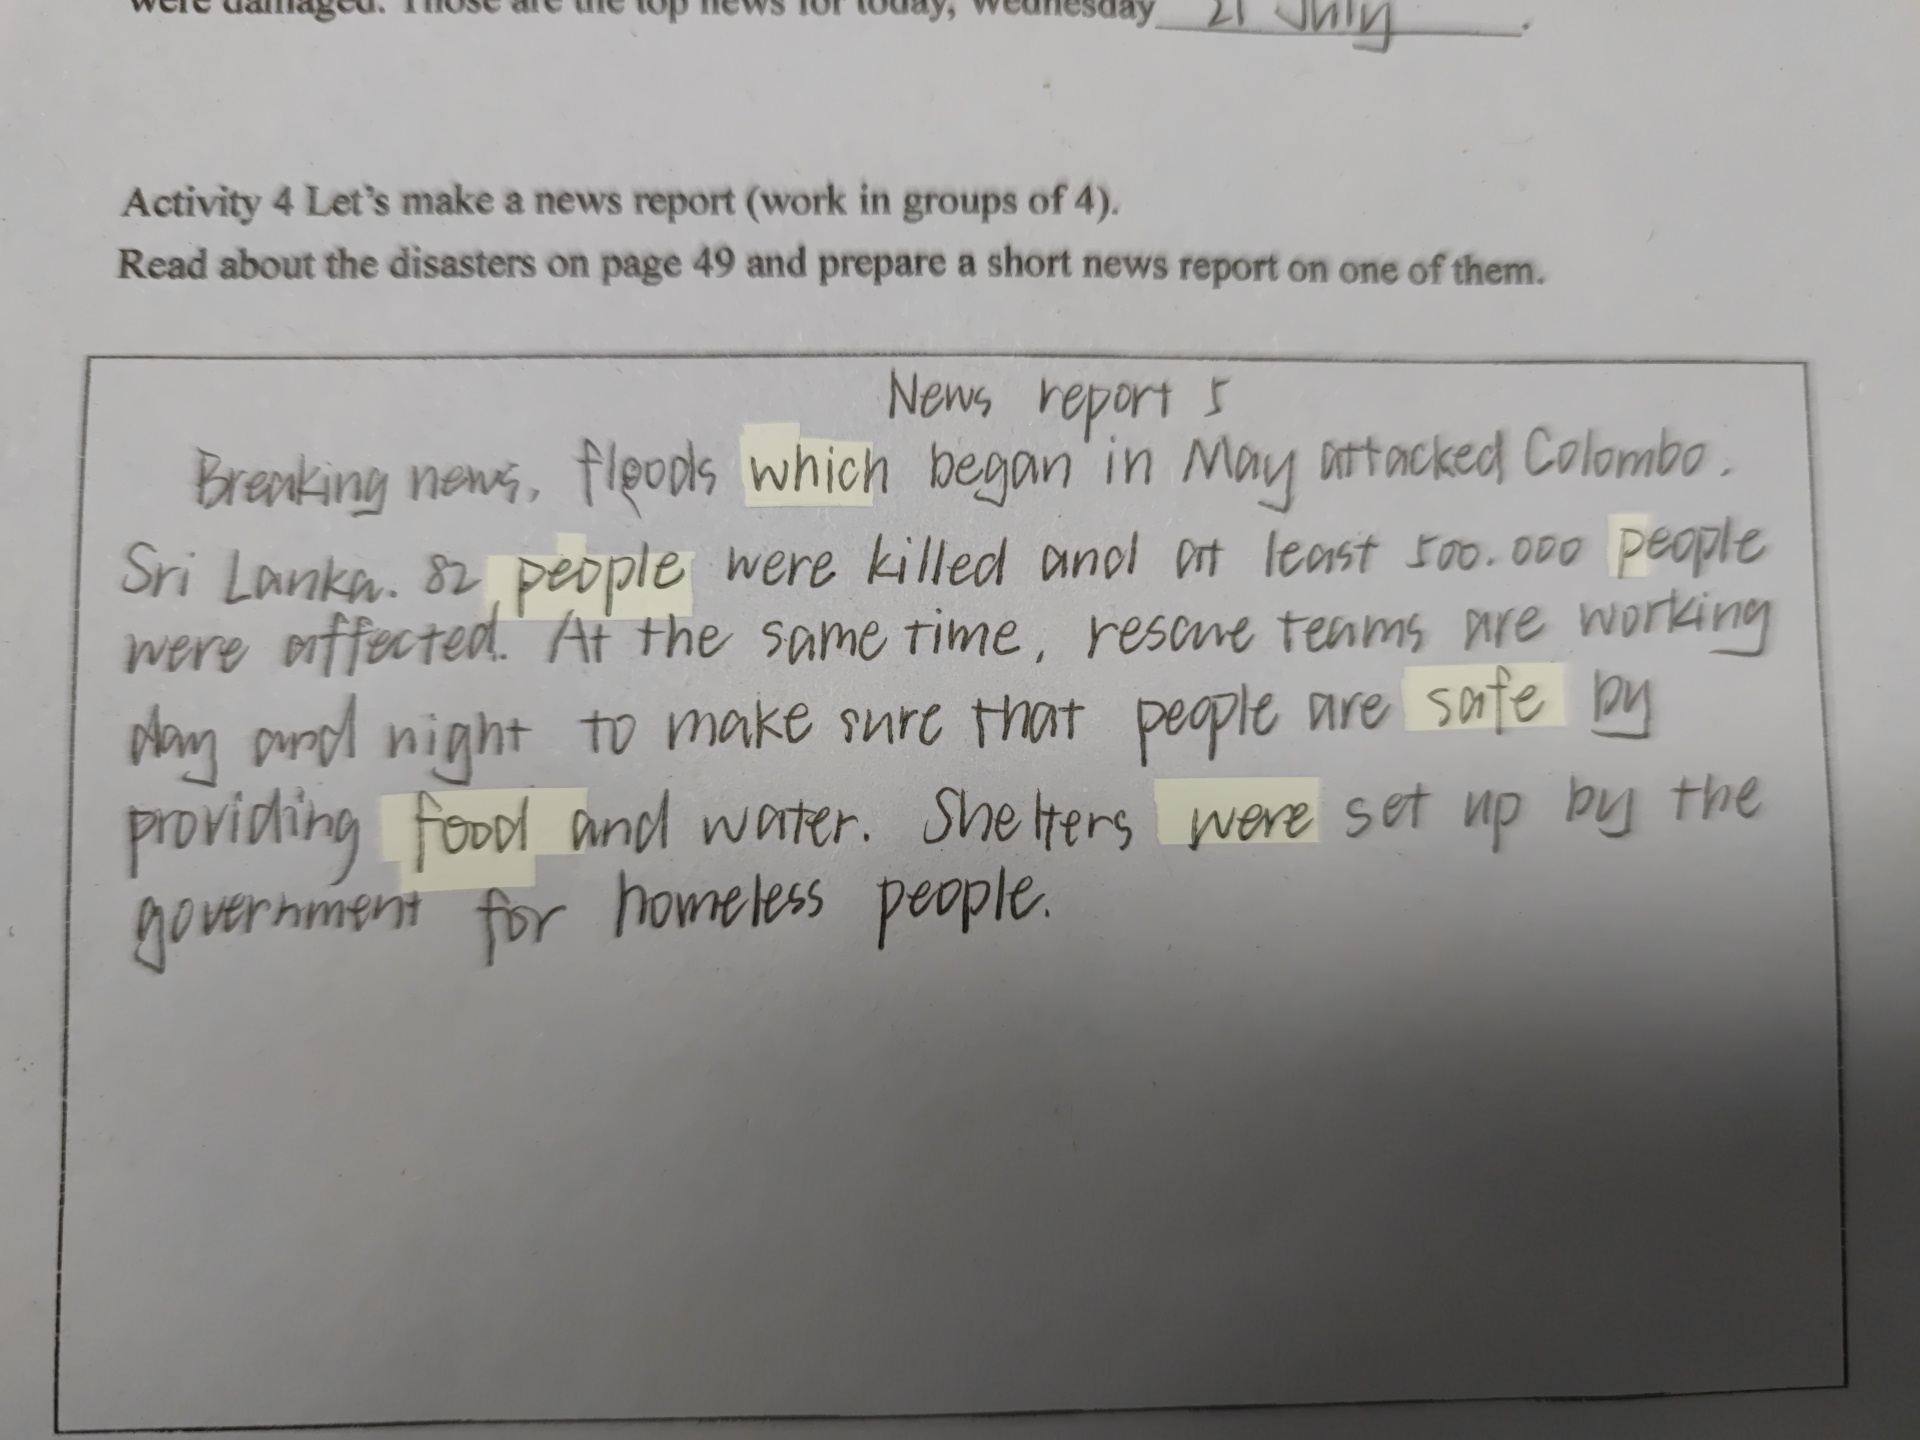 were damaged. Those are the top news for today, Wednesday 21 July.
Activity 4 Let's make a news report (work in groups of 4).
Read about the disasters on page 49 and prepare a short news report on one of them.
News report 5
Breaking news, floods which began in May attacked Colombo.
Sri Lanka. 82 people were killed and at least 500.000 people
were affected. At the same time, rescue teams are working
day and night to make sure that people are safe by
providing food and water. Shelters were set up by the
government for homeless people.